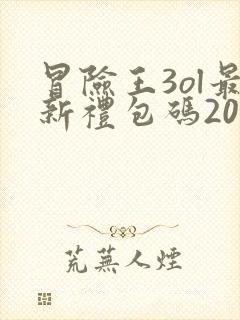 冒險王3ol最
新禮包碼20
荒蕪人煙